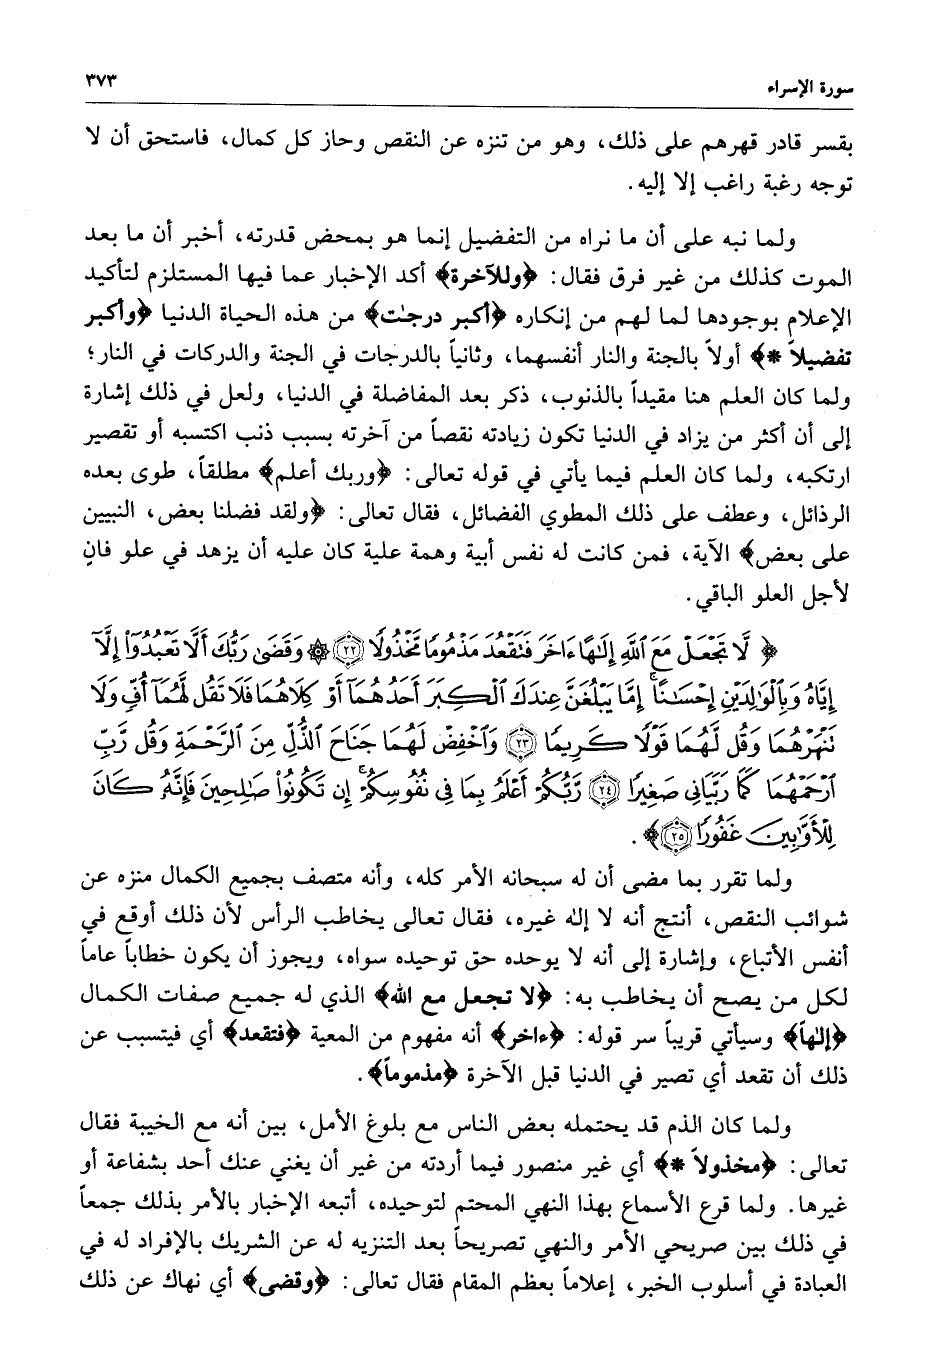 سورة الإسراء ٣٧٣
بقسر قادر قهرهم على ذلك، وهو من تنزه عن النقص وحاز كل كمال، فاستحق أن لا
توجه رغبة راغب إلا إليه.
ولما نبه على أن ما نراه من التفضيل إنما هو بمحض قدرته، أخبر أن ما بعد
الموت كذلك من غير فرق فقال: ﴿وللآخرة﴾ أكد الإخبار عما فيها المستلزم لتأكيد
الإعلام بوجودها لما لهم من إنكاره ﴿أكبر درجٰت﴾ من هذه الحياة الدنيا ﴿وأكبر
تفضيلاً *﴾ أولاً بالجنة والنار أنفسهما، وثانياً بالدرجات في الجنة والدركات في النار؛
ولما كان العلم هنا مقيداً بالذنوب، ذكر بعد المفاضلة في الدنيا، ولعل في ذلك إشارة
إلى أن أكثر من يزاد في الدنيا تكون زيادته نقصاً من آخرته بسبب ذنب اكتسبه أو تقصير
ارتكبه، ولما كان العلم فيما يأتي في قوله تعالى: ﴿وربك أعلم﴾ مطلقاً، طوى بعده
الرذائل، وعطف على ذلك المطوي الفضائل، فقال تعالى: ﴿ولقد فضلنا بعض، النبيين
على بعض﴾ الآية، فمن كانت له نفس أبية وهمة علية كان عليه أن يزهد في علو فانٍ
لأجل العلو الباقي.
﴿ لَّا تَجْعَلْ مَعَ ٱللَّهِ إِلَٰهًا ءَاخَرَ فَتَقْعُدَ مَذْمُومًا مَّخْذُولًا ٢٢ ۞ وَقَضَىٰ رَبُّكَ أَلَّا تَعْبُدُوٓا۟ إِلَّآ
إِيَّاهُ وَبِٱلْوَٰلِدَيْنِ إِحْسَٰنًا ۚ إِمَّا يَبْلُغَنَّ عِندَكَ ٱلْكِبَرَ أَحَدُهُمَآ أَوْ كِلَاهُمَا فَلَا تَقُل لَّهُمَآ أُفٍّ وَلَا
تَنْهَرْهُمَا وَقُل لَّهُمَا قَوْلًا كَرِيمًا ٢٣ وَٱخْفِضْ لَهُمَا جَنَاحَ ٱلذُّلِّ مِنَ ٱلرَّحْمَةِ وَقُل رَّبِّ
ٱرْحَمْهُمَا كَمَا رَبَّيَانِى صَغِيرًا ٢٤ رَّبُّكُمْ أَعْلَمُ بِمَا فِى نُفُوسِكُمْ ۚ إِن تَكُونُوا۟ صَٰلِحِينَ فَإِنَّهُۥ كَانَ
لِلْأَوَّٰبِينَ غَفُورًا ٢٥ ﴾.
ولما تقرر بما مضى أن له سبحانه الأمر كله، وأنه متصف بجميع الكمال منزه عن
شوائب النقص، أنتج أنه لا إلٰه غيره، فقال تعالى يخاطب الرأس لأن ذلك أوقع في
أنفس الأتباع، وإشارة إلى أنه لا يوحده حق توحيده سواه، ويجوز أن يكون خطاباً عاماً
لكل من يصح أن يخاطب به: ﴿لا تجعل مع الله﴾ الذي له جميع صفات الكمال
﴿إلٰهاً﴾ وسيأتي قريباً سر قوله: ﴿ءاخر﴾ أنه مفهوم من المعية ﴿فتقعد﴾ أي فيتسبب عن
ذلك أن تقعد أي تصير في الدنيا قبل الآخرة ﴿مذموماً﴾.
ولما كان الذم قد يحتمله بعض الناس مع بلوغ الأمل، بين أنه مع الخيبة فقال
تعالى: ﴿مخذولاً *﴾ أي غير منصور فيما أردته من غير أن يغني عنك أحد بشفاعة أو
غيرها. ولما قرع الأسماع بهذا النهي المحتم لتوحيده، أتبعه الإخبار بالأمر بذلك جمعاً
في ذلك بين صريحي الأمر والنهي تصريحاً بعد التنزيه له عن الشريك بالإفراد له في
العبادة في أسلوب الخبر، إعلاماً بعظم المقام فقال تعالى: ﴿وقضى﴾ أي نهاك عن ذلك